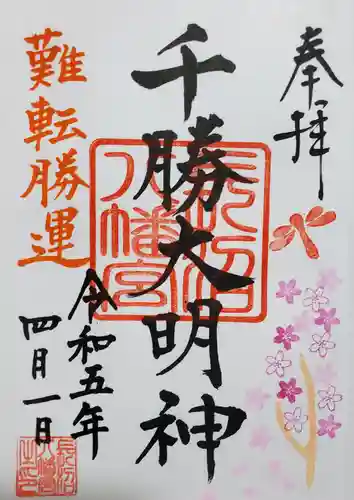 奉拝
千勝大明神
長沼八幡宮
難転勝運
令和五年
四月一日